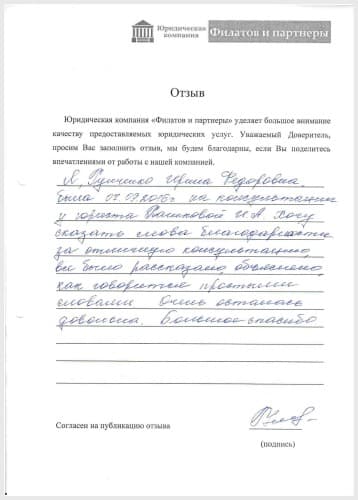 Юридическая
компания
Филатов и партнеры
Отзыв
Юридическая компания «Филатов и партнеры» уделяет большое внимание
качеству предоставляемых юридических услуг. Уважаемый Доверитель,
просим Вас заполнить отзыв, мы будем благодарны, если Вы поделитесь
впечатлениями от работы с нашей компанией.
Я, Ирина Федоровна
была на консультации
у юриста И.А. Хочу
сказать слова благодарности
за отличную консультацию,
все было рассказано, объяснено,
как говориться простыми
словами Очень осталась
довольна. Большое спасибо
Согласен на публикацию отзыва
(подпись)